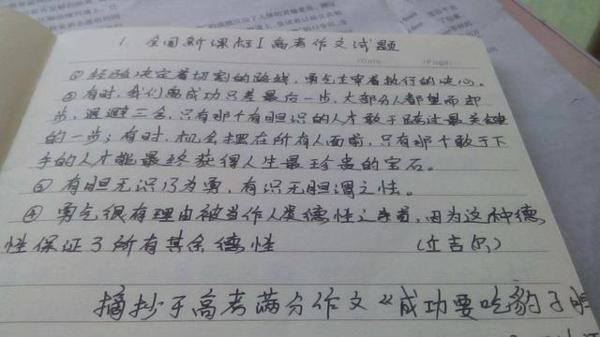 1. 全国新课标I高考作文试题
① 经验决定着切割的路线，勇气主宰者执行的决心。
② 有时，我们离成功只差最后一步，大部分人都望而却
步，退避三舍，只有那个有胆识的人才敢于跨过最关键
的一步；有时，机会摆在所有人面前，只有那个敢于下
手的人才能最终获得人生最珍贵的宝石。
③ 有胆无识乃为勇，有识无胆谓之怯。
④ 勇气很有理由被当作人类德性之首，因为这种德
性保证了所有其余德性 （丘吉尔）
摘抄于高考满分作文《成功要吃豹子胆